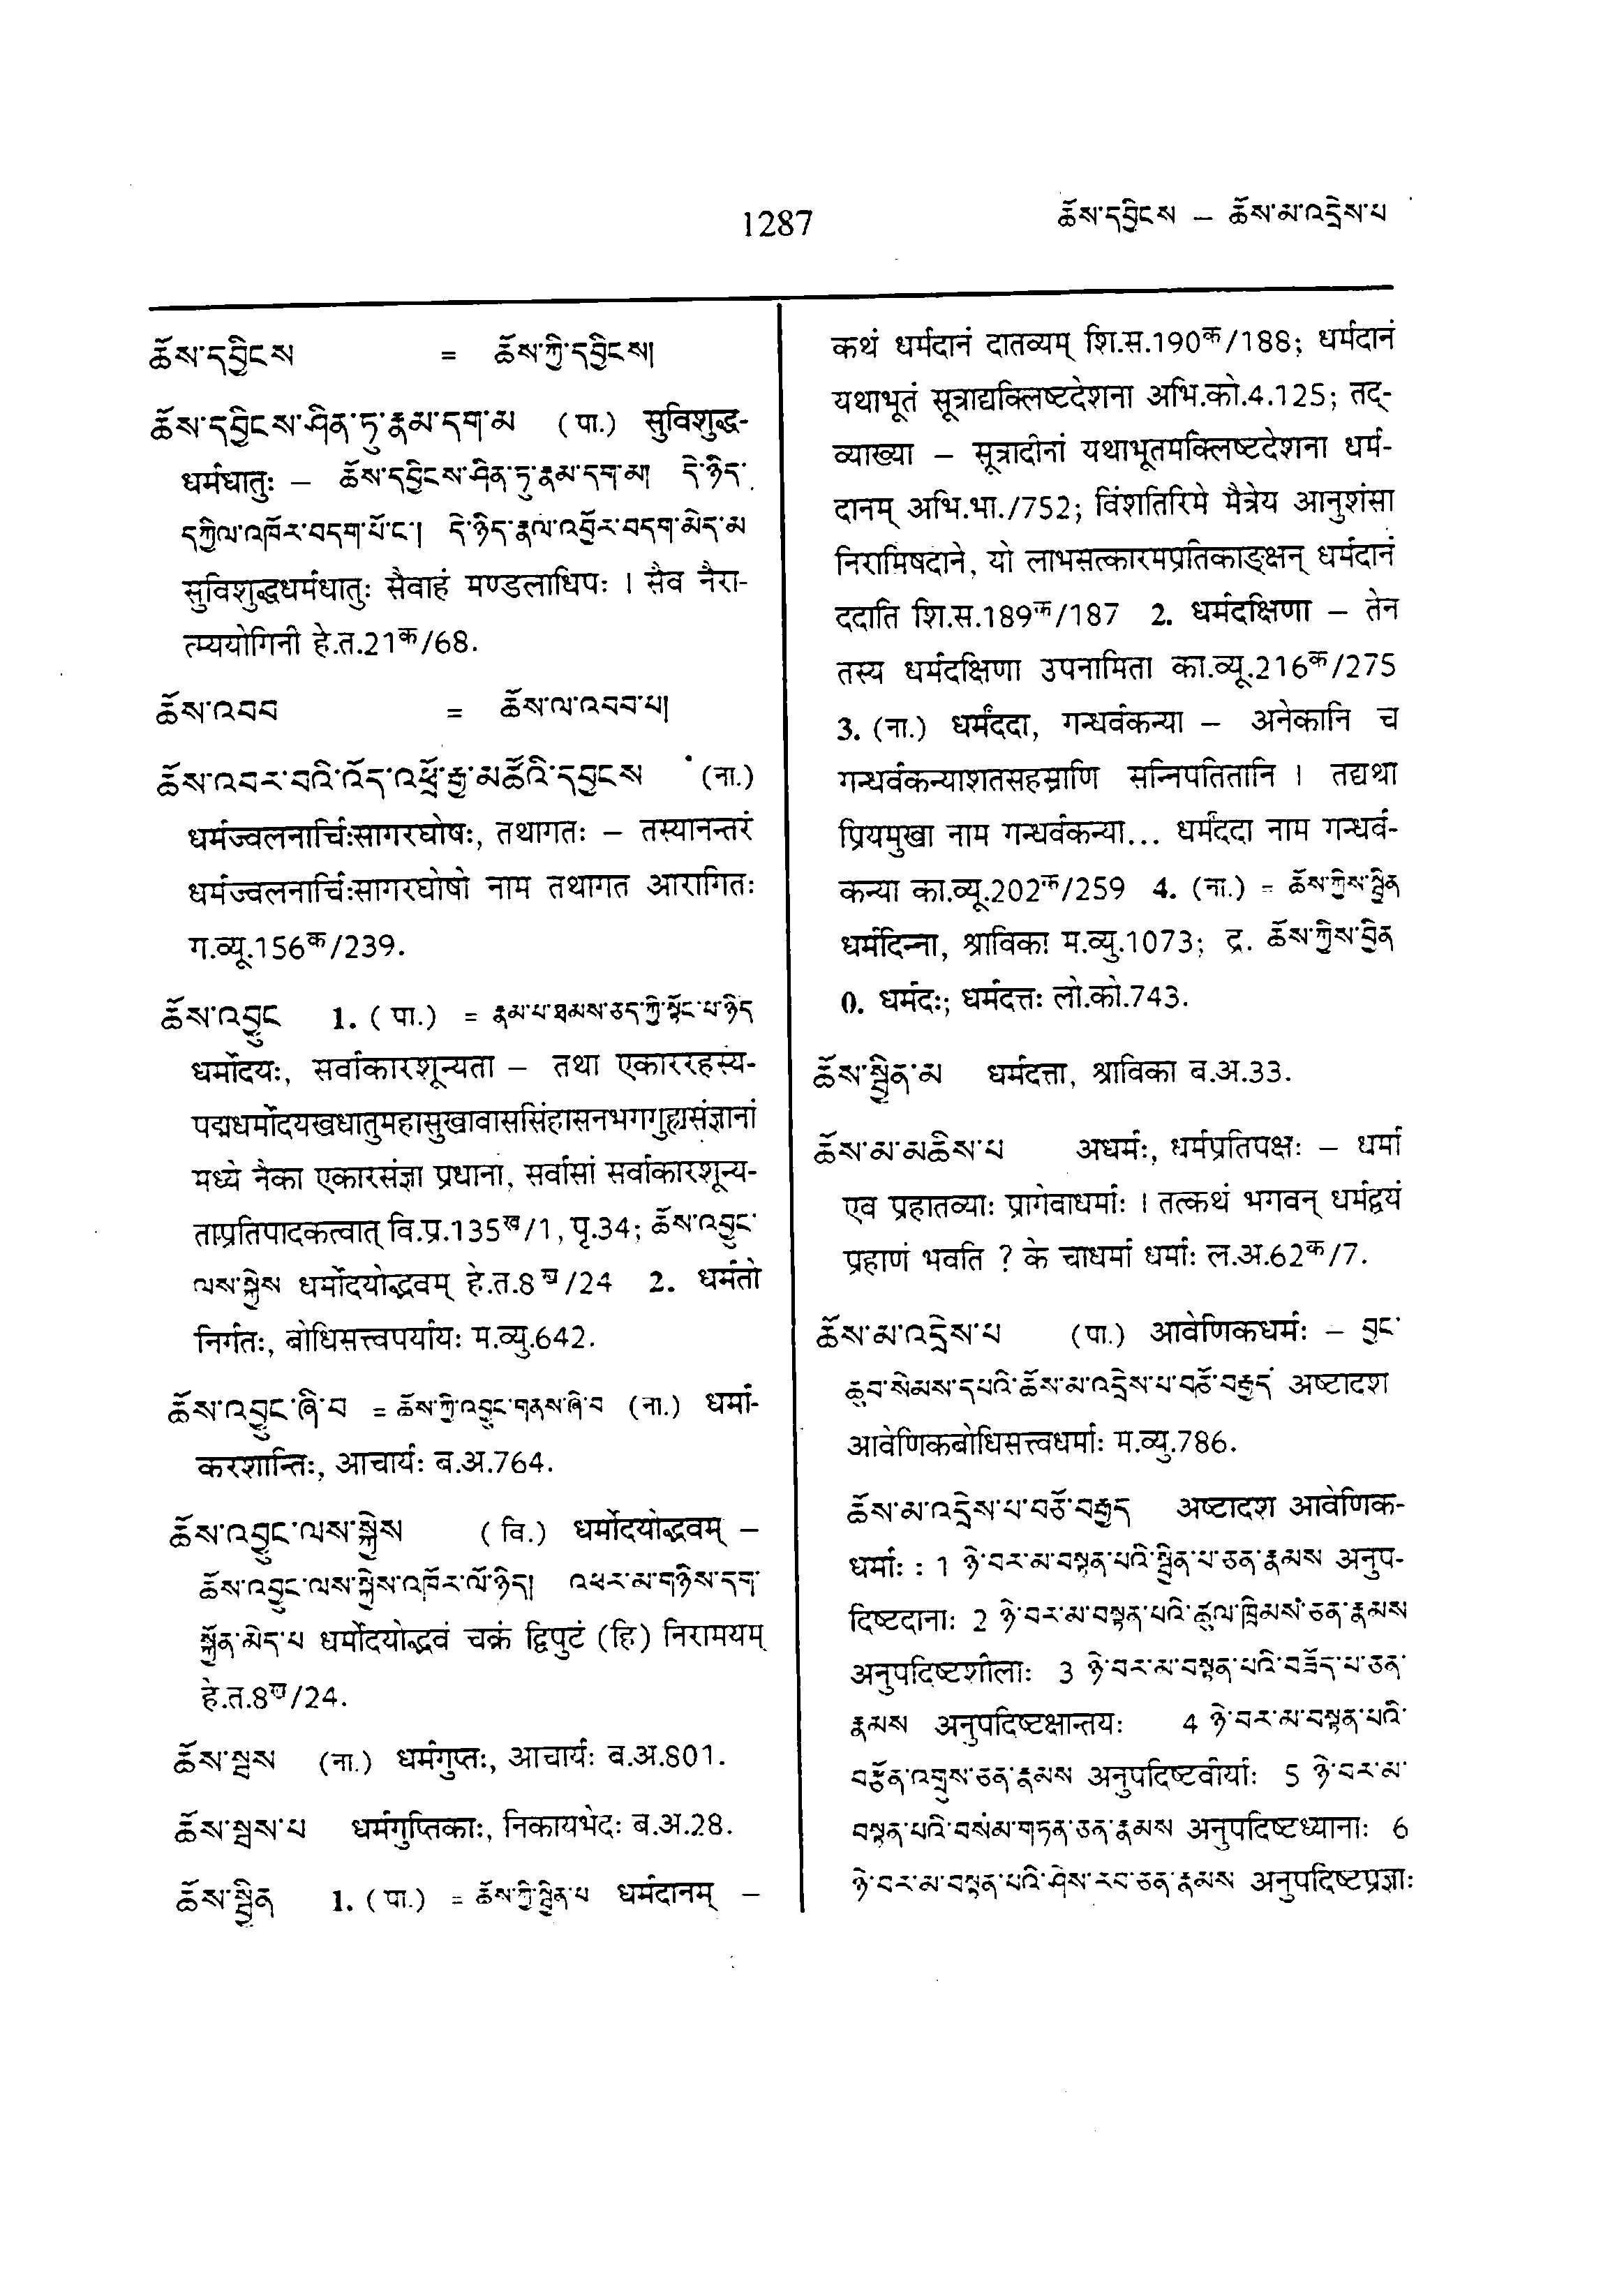 1287
ཆོས་དབྱིངས – ཆོས་མ་འདྲེས་པ
ཆོས་དབྱིངས = ཆོས་ཀྱི་དབྱིངས།
ཆོས་དབྱིངས་ཤིན་ཏུ་རྣམ་དག་མ (पा.) सुविशुद्ध-
धर्मधातुः – ཆོས་དབྱིངས་ཤིན་ཏུ་རྣམ་དག་མ། དེ་ཉིད་
དཀྱིལ་འཁོར་བདག་པོ་ང་། དེ་ཉིད་རྣལ་འབྱོར་བདག་མེད་མ
सुविशुद्धधर्मधातुः सैवाहं मण्डलाधिपः । सैव नैरा-
त्म्ययोगिनी हे.त.21क/68.
ཆོས་འབབ = ཆོས་ལ་འབབ་པ།
ཆོས་འབར་བའི་འོད་འཕྲོ་རྒྱ་མཚོའི་དབྱངས (ना.)
धर्मज्वलनार्चिःसागरघोषः, तथागतः – तस्यानन्तरं
धर्मज्वलनार्चिःसागरघोषो नाम तथागत आरागितः
ग.व्यू.156क/239.
ཆོས་འབྱུང 1. (पा.) = རྣམ་པ་ཐམས་ཅད་ཀྱི་སྟོང་པ་ཉིད
धर्मोदयः, सर्वाकारशून्यता – तथा एकाररहस्य-
पद्मधर्मोदयखधातुमहासुखावाससिंहासनभगगुह्यसंज्ञानां
मध्ये नैका एकारसंज्ञा प्रधाना, सर्वासां सर्वाकारशून्य-
ताप्रतिपादकत्वात् वि.प्र.135ख/1, पृ.34; ཆོས་འབྱུང་
ལས་སྐྱེས धर्मोदयोद्भवम् हे.त.8ख/24 2. धर्मतो
निर्गतः, बोधिसत्त्वपर्यायः म.व्यु.642.
ཆོས་འབྱུང་ཞི་བ = ཆོས་ཀྱི་འབྱུང་གནས་ཞི་བ (ना.) धर्मा-
करशान्तिः, आचार्यः ब.अ.764.
ཆོས་འབྱུང་ལས་སྐྱེས (वि.) धर्मोदयोद्भवम् –
ཆོས་འབྱུང་ལས་སྐྱེས་འཁོར་ལོ་ཉིད། འཕར་མ་གཉིས་དག་
སྐྱོན་མེད་པ धर्मोदयोद्भवं चक्रं द्विपुटं (हि) निरामयम्
हे.त.8ख/24.
ཆོས་སྦས (ना.) धर्मगुप्तः, आचार्यः ब.अ.801.
ཆོས་སྦས་པ धर्मगुप्तिकाः, निकायभेदः ब.अ.28.
ཆོས་སྦྱིན 1. (पा.) = ཆོས་ཀྱི་སྦྱིན་པ धर्मदानम् –
कथं धर्मदानं दातव्यम् शि.स.190क/188; धर्मदानं
यथाभूतं सूत्राद्यक्लिष्टदेशना अभि.को.4.125; तद्-
व्याख्या – सूत्रादीनां यथाभूतमक्लिष्टदेशना धर्म-
दानम् अभि.भा./752; विंशतिरिमे मैत्रेय आनुशंसा
निरामिषदाने, यो लाभसत्कारमप्रतिकाङ्क्षन् धर्मदानं
ददाति शि.स.189क/187 2. धर्मदक्षिणा – तेन
तस्य धर्मदक्षिणा उपनामिता का.व्यू.216क/275
3. (ना.) धर्मंददा, गन्धर्वकन्या – अनेकानि च
गन्धर्वकन्याशतसहस्राणि सन्निपतितानि । तद्यथा
प्रियमुखा नाम गन्धर्वकन्या... धर्मंददा नाम गन्धर्व-
कन्या का.व्यू.202क/259 4. (ना.) = ཆོས་ཀྱིས་སྦྱིན
धर्मदिन्ना, श्राविका म.व्यु.1073; द्र. ཆོས་ཀྱིས་བྱིན
0. धर्मदः; धर्मदत्तः लो.को.743.
ཆོས་སྦྱིན་མ धर्मदत्ता, श्राविका ब.अ.33.
ཆོས་མ་མཆིས་པ अधर्मः, धर्मप्रतिपक्षः – धर्मा
एव प्रहातव्याः प्रागेवाधर्माः । तत्कथं भगवन् धर्मद्वयं
प्रहाणं भवति ? के चाधर्मा धर्माः ल.अ.62क/7.
ཆོས་མ་འདྲེས་པ (पा.) आवेणिकधर्मः – བྱང་
ཆུབ་སེམས་དཔའི་ཆོས་མ་འདྲེས་པ་བཅོ་བརྒྱད अष्टादश
आवेणिकबोधिसत्त्वधर्माः म.व्यु.786.
ཆོས་མ་འདྲེས་པ་བཅོ་བརྒྱད अष्टादश आवेणिक-
धर्माः : 1 ཉེ་བར་མ་བསྟན་པའི་སྦྱིན་པ་ཅན་རྣམས अनुप-
दिष्टदानाः 2 ཉེ་བར་མ་བསྟན་པའི་ཚུལ་ཁྲིམས་ཅན་རྣམས
अनुपदिष्टशीलाः 3 ཉེ་བར་མ་བསྟན་པའི་བཟོད་པ་ཅན་
རྣམས अनुपदिष्टक्षान्तयः 4 ཉེ་བར་མ་བསྟན་པའི་
བརྩོན་འགྲུས་ཅན་རྣམས अनुपदिष्टवीर्याः 5 ཉེ་བར་མ་
བསྟན་པའི་བསམ་གཏན་ཅན་རྣམས अनुपदिष्टध्यानाः 6
ཉེ་བར་མ་བསྟན་པའི་ཤེས་རབ་ཅན་རྣམས अनुपदिष्टप्रज्ञाः